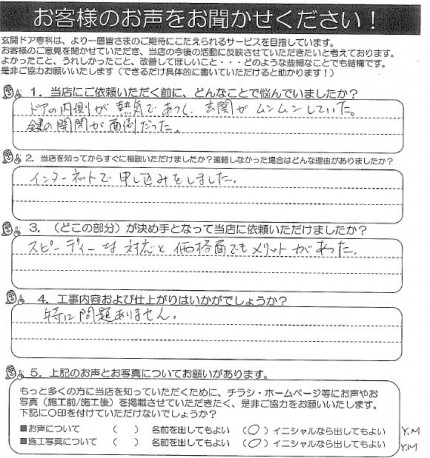 お客様のお声をお聞かせください！
玄関ドア専科は、より一層皆さまのご期待にこたえられるサービスを目指しています。
お客様のご意見を聞かせていただき、当店の今後の活動に反映させていただきたいと考えております。
よかったこと、うれしかったこと、改善してほしいこと・・・どのような些細なことでも結構です。
是非ご協力お願いいたします（できるだけ具体的に書いていただけると助かります！）
1．当店にご依頼いただく前に、どんなことで悩んでいましたか？
ドアの内側が熱気であつく、玄関がムンムンしていた。
鍵の開閉が面倒だった。
2．当店を知ってからすぐに相談いただけましたか？連絡しなかった場合はどんな理由がありましたか？
インターネットで申し込みをしました。
3．（どこの部分）が決め手となって当店に依頼いただけましたか？
スピーディーな対応と価格面でもメリットがあった。
4．工事内容および仕上がりはいかがでしょうか？
特に問題ありません。
5．上記のお声とお写真についてお願いがあります。
もっと多くの方に当店を知っていただくために、チラシ・ホームページ等にお声やお
写真（施工前/施工後）を掲載させていただきたく、是非ご協力をお願いいたします。
下記に○印を付けていただけないでしょうか？
■お声について （ ） 名前を出してもよい （○）イニシャルなら出してもよい Y.M
■施工写真について （ ） 名前を出してもよい （○）イニシャルなら出してもよい Y.M